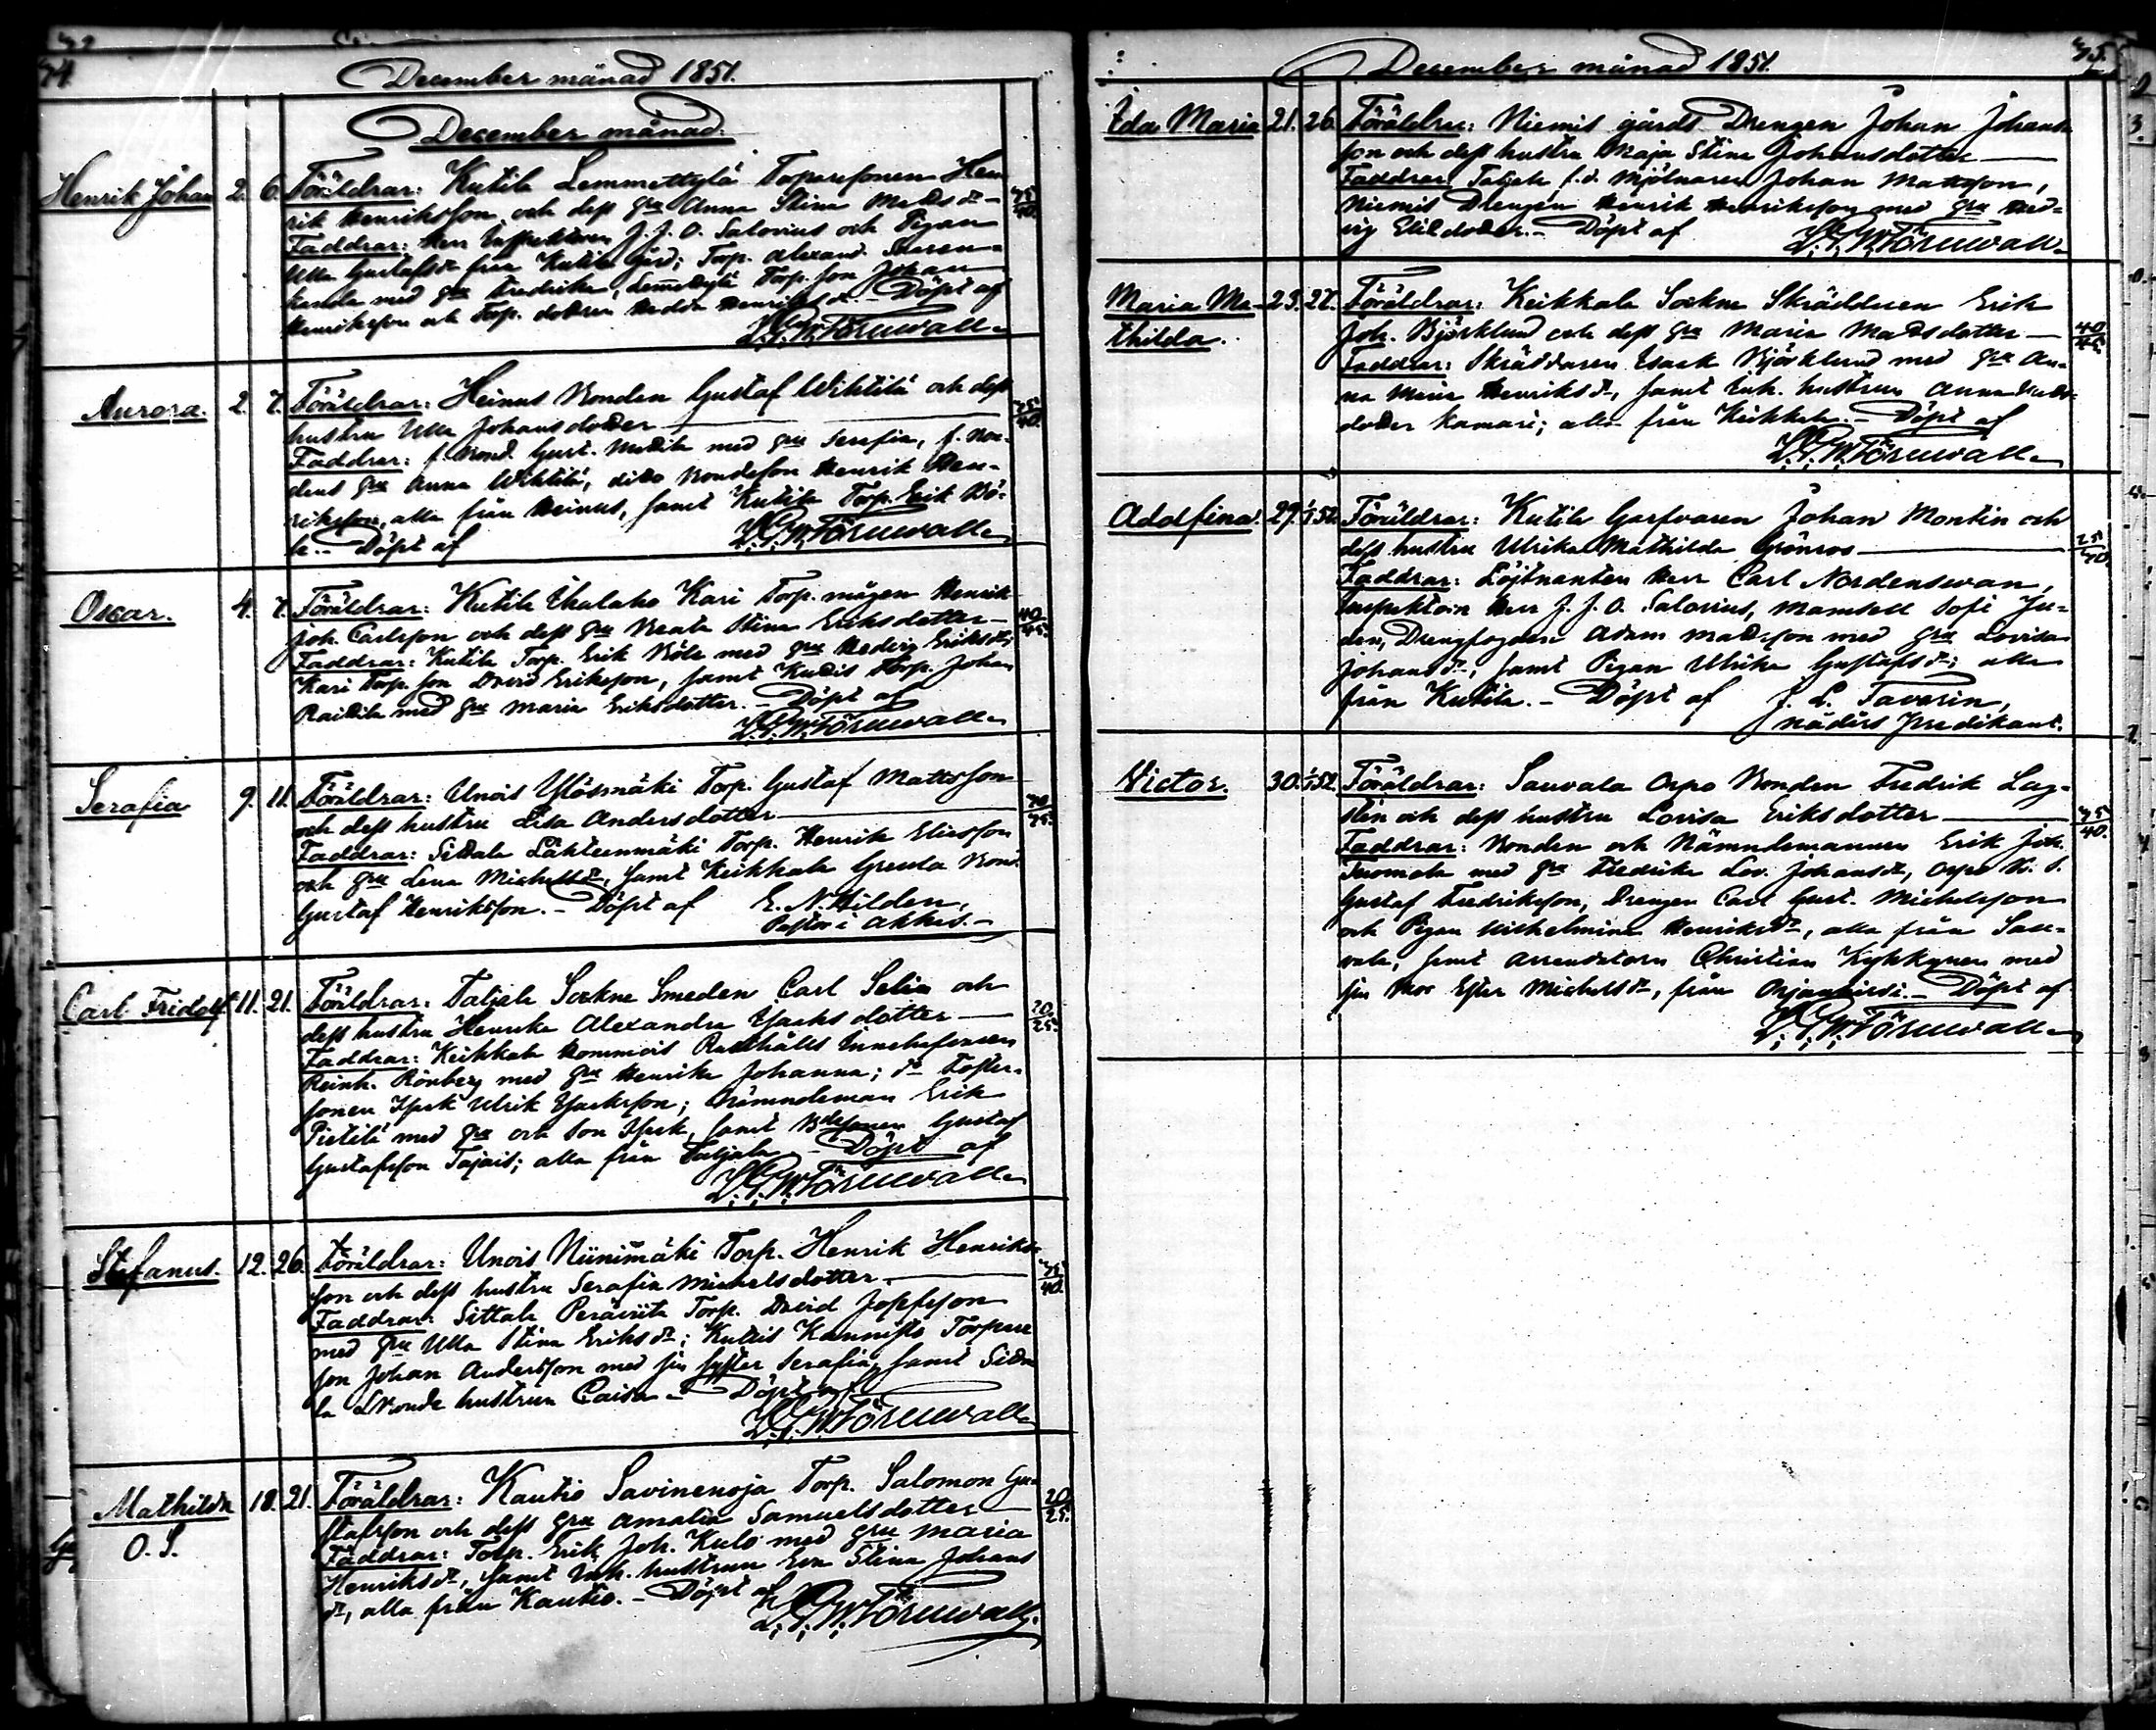 74.
December månad 1851.
December månad.
Henrik Johan 2. 6. Föräldrar: Kutila Lemmettylä Toparesonen Hen
rik Henriksson och dess gru Anna Stina Mattsdr
35/40.
Faddrar: Herr Inspektoren J. J. O. Salovius och Pigan
Ulla Gustafsdr från Kutila Gård; Torp. Alexand.
med gru Fredrika, Torp. son Johan
Henriksson och Torp. dottren Hedda Henriksdr - Döpt af
Törnwall
Aurora. 2. 7. Föräldrar: Heinus Bonden Gustaf Wihtilä och dess
hustru Ulla Johansdotter
35/40.
Faddrar: f. Bond. Gust. Mattila med gru Serafia, f. Bon-
dens gru Anna Wihtilä, dito Bondeson Henrik Hen-
riksson, alla från Heinus, samt Kutila Torp. Erik Bö-
le. - Döpt af Törnwall
Oscar. 4. 7. Föräldrar: Kutila Uhalaho Kari Torp. mågen Henrik
Joh. Carlsson och dess gru Beata Stina Eriksdotter
40/45.
Faddrar: Kutila Torp. Erik Böle med gru Hedvig Eriksdr;
Kari Torp. son David Eriksson, samt Torp. Johan
Raitila med gru Maria Eriksdotter. - Döpt af
Törnwall
Serafia 9. 11. Föräldrar: Unois Ylösmäki Torp. Gustaf Mattsson
och dess hustru Lisa Andersdotter
Faddrar: Sittala Lähteenmäki Torp. Henrik Eliesson
och gru Lena Michelsdr, samt Keikkala Bond.
Gustaf Henriksson. - Döpt af E. N. Hilden,
Pastor i Akkas. -
Carl Fridolf 11. 21. Föräldrar: Taljala Sockne Smeden Carl Selin och
dess hustru Henrika Alexandra Isaksdotter
20/25.
Faddrar: Keikkala Hommois Rusthålls Innehafvaren
Reinh. Rönberg med gru Henrika Johanna; dr Foster-
sonen Isak Ulrik Isaksson; Nämndeman Erik
Pietilä med gru och son Isak, samt Bdesonen Gustaf
Gustafsson Tajais; alla från Taljala - Döpt af
Törnwall
Stefanus. 12. 26. Föräldrar: Unois Niinimäki Torp. Henrik Henriks-
son och dess hustru Serafia Michelsdotter.
35/40.
Faddrar: Sittala Peräviita Torp. David Josefsson
med gru Ulla Stina Eriksdr; Kannisto Torpare
son Johan Andersson med sin syster Serafia, samt Sitta
la Bonde hustrun Caisa. - Döpt af
Törnwall
Mathilda 18. 21. Föräldrar: Kautio Savinenoja Torp. Salomon Gu-
O. S. stafsson och dess gru Amalia Samuelsdotter
20/25.
Faddrar: Torp. Erik Joh. Kulo med gru Maria
Henriksdr, samt Inh. hustrun Eva Stina Johans
dr, alla från Kautio. - Döpt af
Törnwall.
December månad 1851.
75.
Ida Maria 21. 26. Föräldrar: Niemis gårds Drengen Johan Johans
son och dess hustru Maja Stina Johansdotter
Faddrar: Taljala f.d. Mjölnaren Johan Mattsson,
Niemis Drengen Henrik Henriksson med gru Hed-
vig - Döpt af Törnwall
Maria Ma- 23. 27. Föräldrar: Keikkala Sockne Skräddaren Erik
thilda. Joh. Björklund och dess gru Maria Mattsdotter
40/45.
Faddrar: Skräddaren Isaak Björklund med gru An-
na Maria Henriksdr, samt Inh. hustrun Anna
dotter Kamari; alla från Keikkala - Döpt af
Törnwall
Adolfina. 29. 1/1 52. Föräldrar: Kutila Garfvaren Johan Montin och
dess hustru Ulrika Mathilda Grönroos
Faddrar: Löjtnanten Herr Carl Nordenswan,
Inspektorn Herr J. J. O. Salovius, Mamsell Sofi Ju-
den, Drengfogden Adam Mattsson med gru Lovisa
Johansdr, samt Pigan Ulrika Gustafsdr; alla
från Kutila. - Döpt af J. L. Taverin,
nådårs Predikant.
Victor. 30. 1/1 52. Föräldrar: Sauvala Orpo Bonden Fredrik Lag-
sten och dess hustru Lovisa Eriksdotter
35/40.
Faddrar: Bonden och Nämndemannen Erik Joh.
Tuomola med gru Fredrika Lov. Johansdr, Orpo B. S.
Gustaf Fredriksson, Drengen Carl Gust. Michelsson
och Pigan Wilhelmina Henriksdr, alla från Sau-
vala, samt Arrendatorn Christian Kykkynen med
sin Mor Ester Michelsdr, från - Döpt af
Törnwall